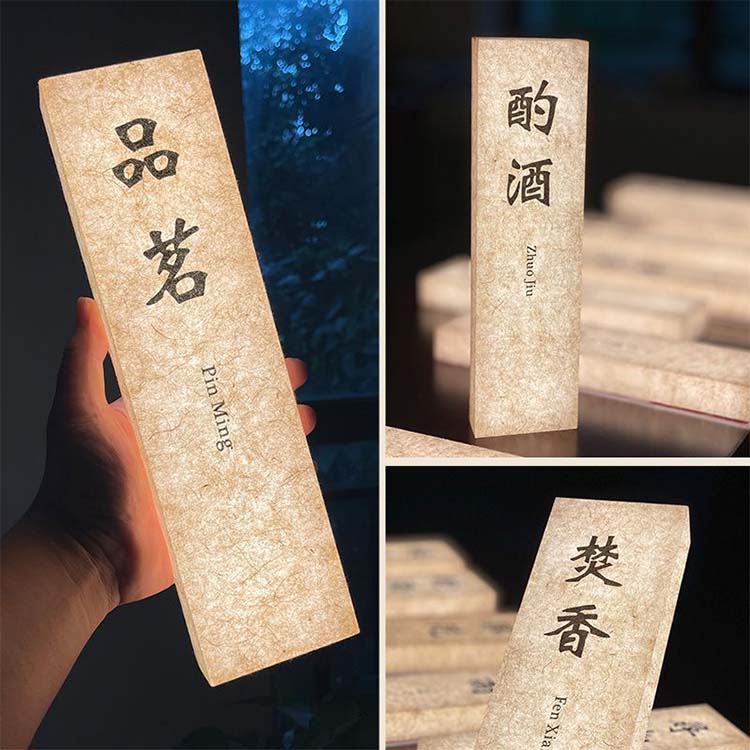 品茗
Pin Ming
酌酒
Zhuo Jiu
焚香
Fen Xia